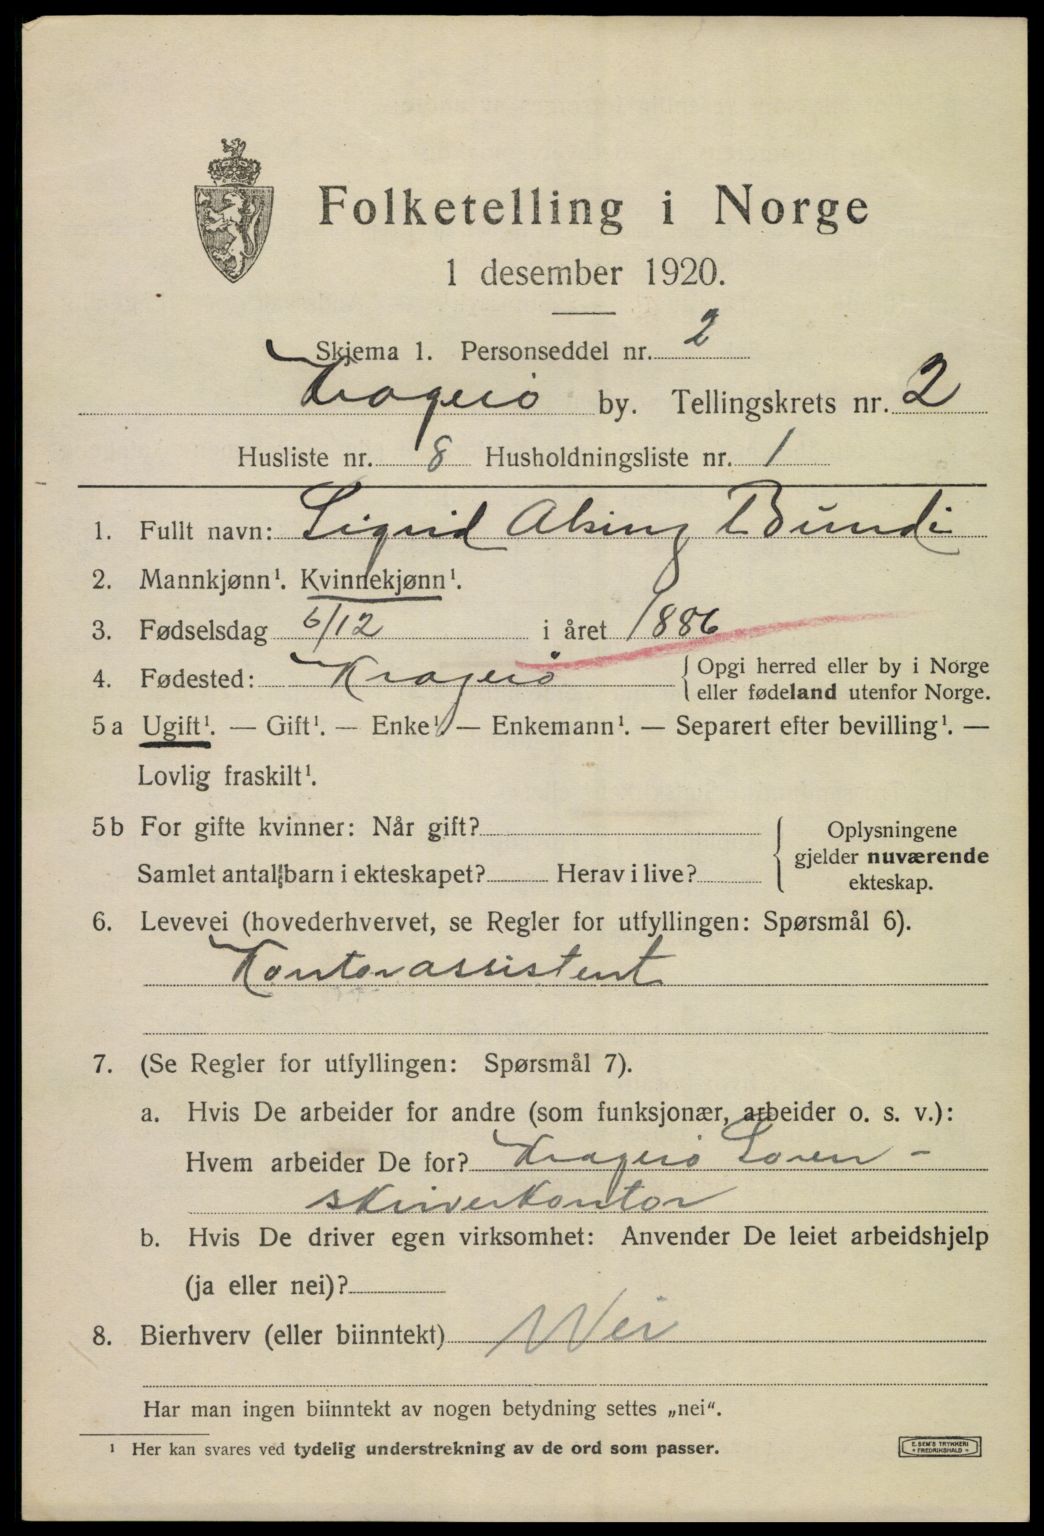 Folketelling i Norge
1 desember 1920.
Skjema 1. Personseddel nr. 2
Kragerø by. Tellingskrets nr. 2
Husliste nr. 8 Husholdningsliste nr. 1
1. Fullt navn: Sigrid Alsing Bundi
2. Mannkjønn¹. Kvinnekjønn¹.
3. Fødselsdag 6/12 i året 1886
4. Fødested: Kragerø { Opgi herred eller by i Norge
eller fødeland utenfor Norge.
5a Ugift¹. — Gift¹. — Enke¹. — Enkemann¹. — Separert efter bevilling¹. —
Lovlig fraskilt¹.
5b For gifte kvinner: Når gift?
Samlet antal barn i ekteskapet? Herav i live?
{ Oplysningene
gjelder nuværende
ekteskap.
6. Levevei (hovederhvervet, se Regler for utfyllingen: Spørsmål 6).
Kontorassistent
7. (Se Regler for utfyllingen: Spørsmål 7).
a. Hvis De arbeider for andre (som funksjonær, arbeider o. s. v.):
Hvem arbeider De for? Kragerø Soren-
skriverkontor
b. Hvis De driver egen virksomhet: Anvender De leiet arbeidshjelp
(ja eller nei)?
8. Bierhverv (eller biinntekt) Nei
Har man ingen biinntekt av nogen betydning settes „nei".
¹ Her kan svares ved tydelig understrekning av de ord som passer.
E. SEM'S TRYKKERI
FREDRIKSHALD